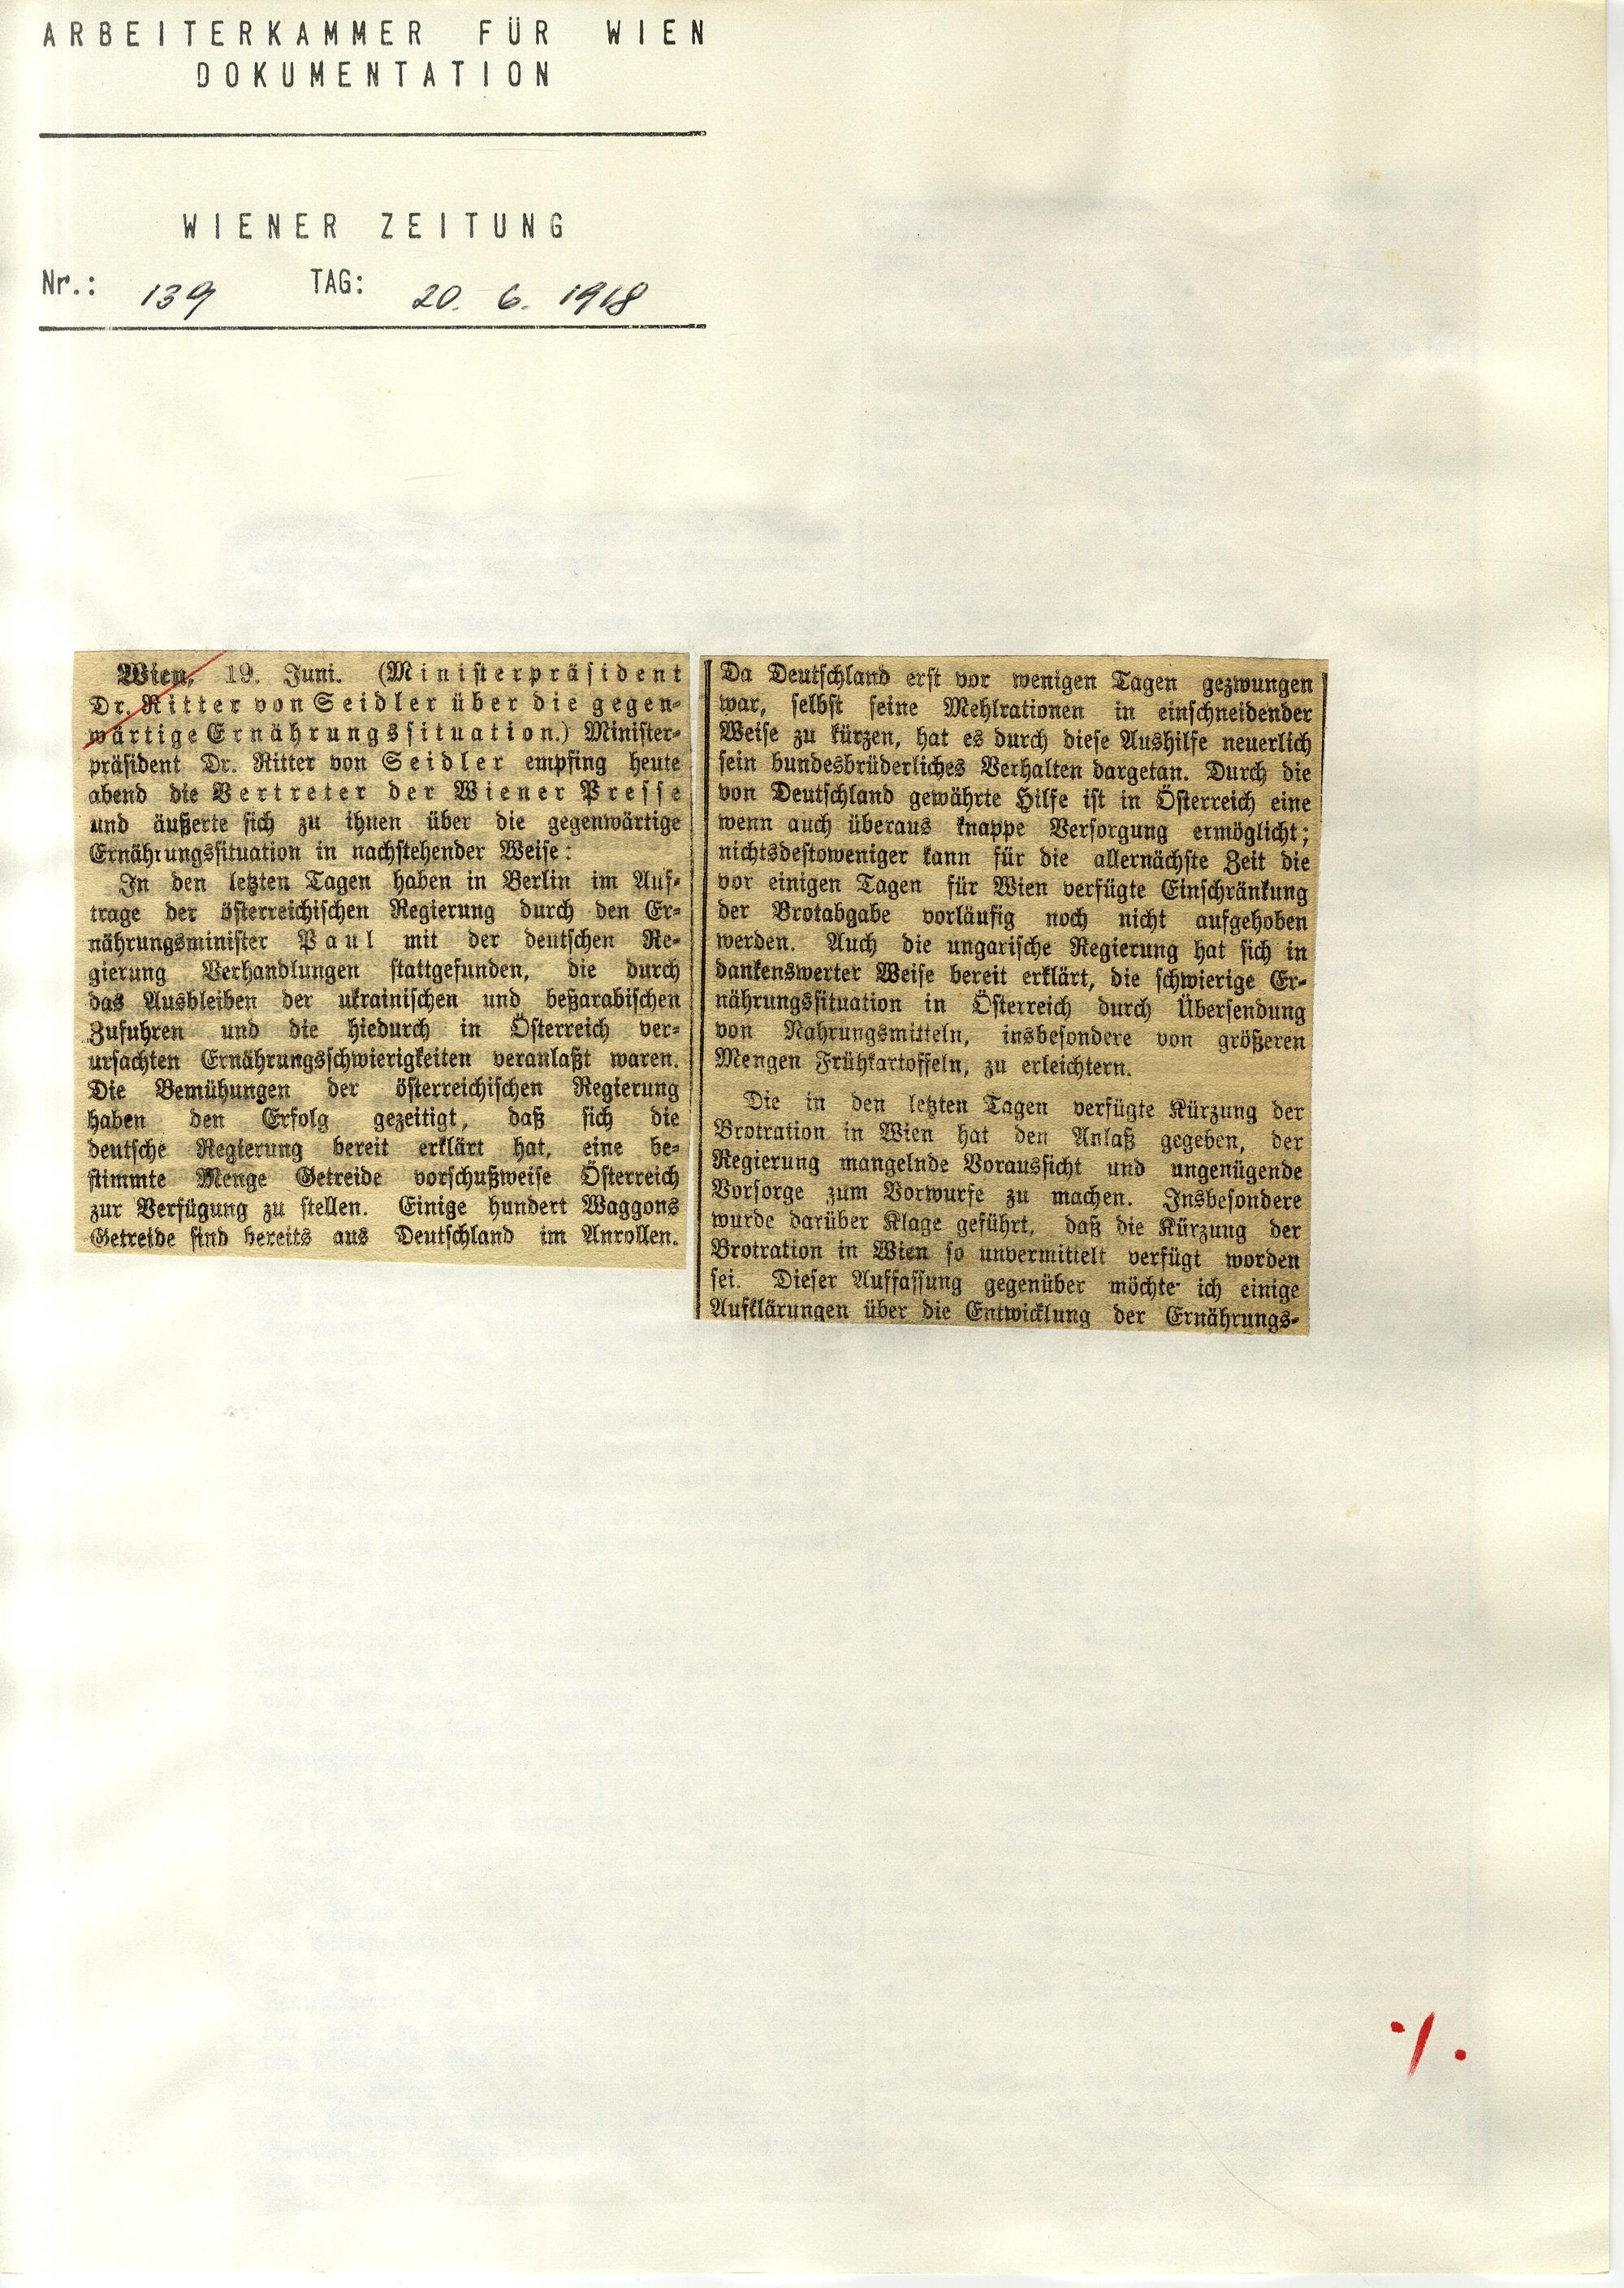 ARBEITERKAMMER FÜR WIEN
DOKUMENTATION
WIENER ZEITUNG
Nr.: 139 TAG: 20. 6. 1918
Wien, 19. Juni. (Ministerpräsident
Dr. Ritter von Seidler über die gegen-
wärtige Ernährungssituation.) Minister-
präsident Dr. Ritter von Seidler empfing heute
abend die Vertreter der Wiener Presse
und äußerte sich zu ihnen über die gegenwärtige
Ernährungssituation in nachstehender Weise:
In den letzten Tagen haben in Berlin im Auf-
trage der österreichischen Regierung durch den Er-
nährungsminister Paul mit der deutschen Re-
gierung Verhandlungen stattgefunden, die durch
das Ausbleiben der ukrainischen und beßarabischen
Zufuhren und die hiedurch in Österreich ver-
ursachten Ernährungsschwierigkeiten veranlaßt waren.
Die Bemühungen der österreichischen Regierung
haben den Erfolg gezeitigt, daß sich die
deutsche Regierung bereit erklärt hat, eine be-
stimmte Menge Getreide vorschußweise Österreich
zur Verfügung zu stellen. Einige hundert Waggons
Getreide sind bereits aus Deutschland im Anrollen.
Da Deutschland erst vor wenigen Tagen gezwungen
war, selbst seine Mehlrationen in einschneidender
Weise zu kürzen, hat es durch diese Aushilfe neuerlich
sein bundesbrüderliches Verhalten dargetan. Durch die
von Deutschland gewährte Hilfe ist in Österreich eine
wenn auch überaus knappe Versorgung ermöglicht;
nichtsdestoweniger kann für die allernächste Zeit die
vor einigen Tagen für Wien verfügte Einschränkung
der Brotabgabe vorläufig noch nicht aufgehoben
werden. Auch die ungarische Regierung hat sich in
dankenswerter Weise bereit erklärt, die schwierige Er-
nährungssituation in Österreich durch Übersendung
von Nahrungsmitteln, insbesondere von größeren
Mengen Frühkartoffeln, zu erleichtern.
Die in den letzten Tagen verfügte Kürzung der
Brotration in Wien hat den Anlaß gegeben, der
Regierung mangelnde Voraussicht und ungenügende
Vorsorge zum Vorwurfe zu machen. Insbesondere
wurde darüber Klage geführt, daß die Kürzung der
Brotration in Wien so unvermittelt verfügt worden
sei. Dieser Auffassung gegenüber möchte ich einige
Aufklärungen über die Entwicklung der Ernährungs-
./.